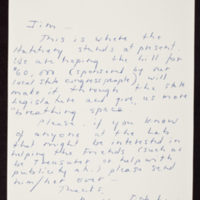 Jim —
This is where the
Hatchery stands at present.
We are hoping the bill for
$60,000 (sponsored by our
local state congress people) will
make it through the state
legislature and give us more
breathing space.
Please, if you know
of anyone at the Lab
that might be interested in
helping the Friends (such as
be Treasurer or help with
publicity etc.) please send
him/her over —
Thanks,